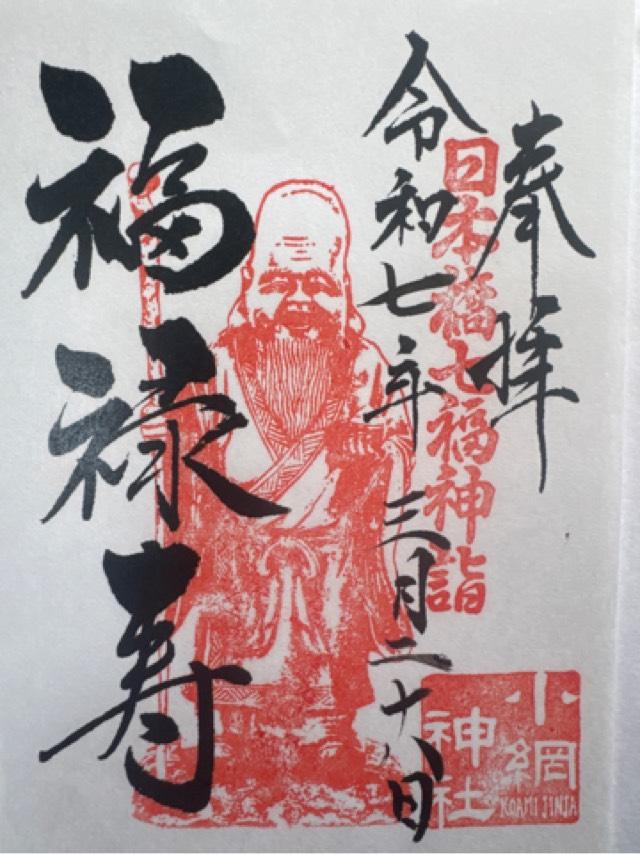 奉拝
日本橋七福神詣
令和七年三月二十八日
福禄寿
小網
神社
KOAMI JINJA